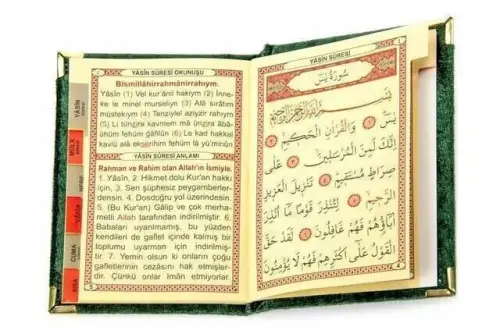 YÂSİN SÛRESİ OKUNUŞU
Bismillâhirrahmânirrahıym.
Yâsîn (1) Vel kur'ânil hakiym (2) İnne-
ke le minel murseliyn (3) Alâ sırâtım
müstekıym (4) Tenziylel aziyzir rahıym
(5) Li tünzira kavmem mâ ünzira âbâ-
ühüm fehüm ğâfilûn (6) Le kad hakkal
kavlü alâ ekserihim fehüm lâ yü'minûn
YÂSİN SÛRESİ ANLAMI
Rahman ve Rahim olan Allah'ın İsmiyle.
1. Yâsîn, 2. Hikmet dolu Kur'an hakkı
için, 3. Sen şüphesiz peygamberler-
densin. 4. Dosdoğru yol üzerindesin.
5. (Bu Kur'an) Gâlip ve çok merha-
metli Allah tarafından indirilmiştir. 6.
Babaları uyarılmamış, bu yüzden
kendileri de gaflet içinde kalmış bir
toplumu uyarman için indirilmiş-
tir. 7. Yemin olsun ki onların çoğu
gafletlerinin cezasını hak etmişler-
dir. Çünkü onlar îmân etmiyorlar.
YÂSİN
MÜLK
NEBE
CUMA
YÂSİN SÛRESİ
سُورَةُ يٰسٓ
بِسْمِ اللّٰهِ الرَّحْمٰنِ الرَّحِيمِ
يٰسٓ ۝ وَالْقُرْاٰنِ الْحَكِيمِ ۝
اِنَّكَ لَمِنَ الْمُرْسَلِينَ ۝ عَلٰى
صِرَاطٍ مُسْتَقِيمٍ ۝ تَنْزِيلَ الْعَزِيزِ
الرَّحِيمِ ۝ لِتُنْذِرَ قَوْمًا مَٓا اُنْذِرَ
اٰبَٓاؤُ۬هُمْ فَهُمْ غَافِلُونَ ۝ لَقَدْ حَقَّ
الْقَوْلُ عَلٰٓى اَكْثَرِهِمْ فَهُمْ لَا يُؤْمِنُونَ